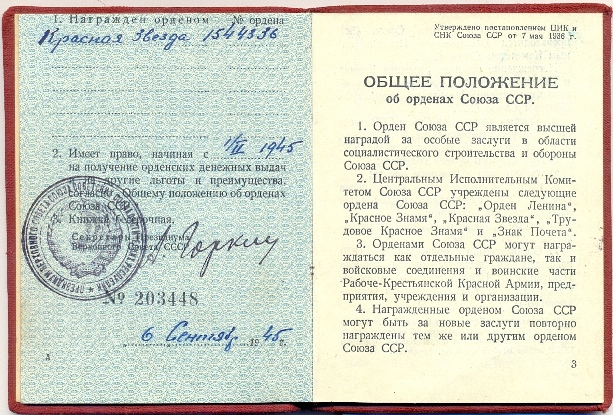 1. Награжден орденом № ордена
Красная Звезда 1544336
2. Имеет право, начиная с 1/II 1945
на получение орденских денежных выдач
и другие льготы и преимущества,
согласно „Общему положению об орденах
Союза ССР".
Книжка бессрочная.
Секретарь Президиума
Верховного Совета СССР
Горкин
№ 203448
6 Сентяб. 1945 г.
Утверждено постановлением ЦИК и
СНК Союза ССР от 7 мая 1936 г.
ОБЩЕЕ ПОЛОЖЕНИЕ
об орденах Союза ССР.
1. Орден Союза ССР является высшей
наградой за особые заслуги в области
социалистического строительства и обороны
Союза ССР.
2. Центральным Исполнительным Коми-
тетом Союза ССР учреждены следующие
ордена Союза ССР: „Орден Ленина",
„Красное Знамя", „Красная Звезда", „Тру-
довое Красное Знамя" и „Знак Почета".
3. Орденами Союза ССР могут награ-
ждаться как отдельные граждане, так и
войсковые соединения и воинские части
Рабоче-Крестьянской Красной Армии, пред-
приятия, учреждения и организации.
4. Награжденные орденом Союза ССР
могут быть за новые заслуги повторно
награждены тем же или другим орденом
Союза ССР.
3